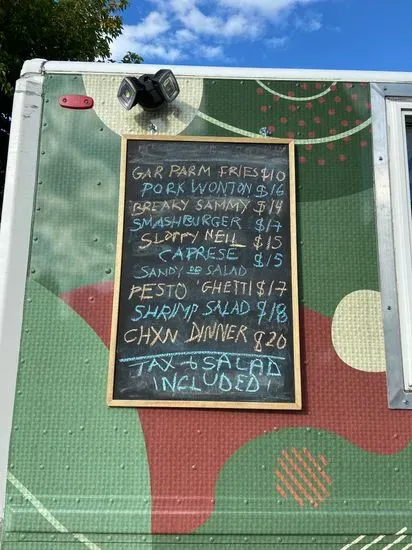 GAR PARM FRIES $10
PORK WONTON $16
BREAKY SAMMY $14
SMASHBURGER $17
SLOPPY NEIL $15
CAPRESE $15
SANDY OR SALAD
PESTO 'GHETTI $17
SHRIMP SALAD $18
CHXN DINNER $20
TAX & SALAD
INCLUDED!